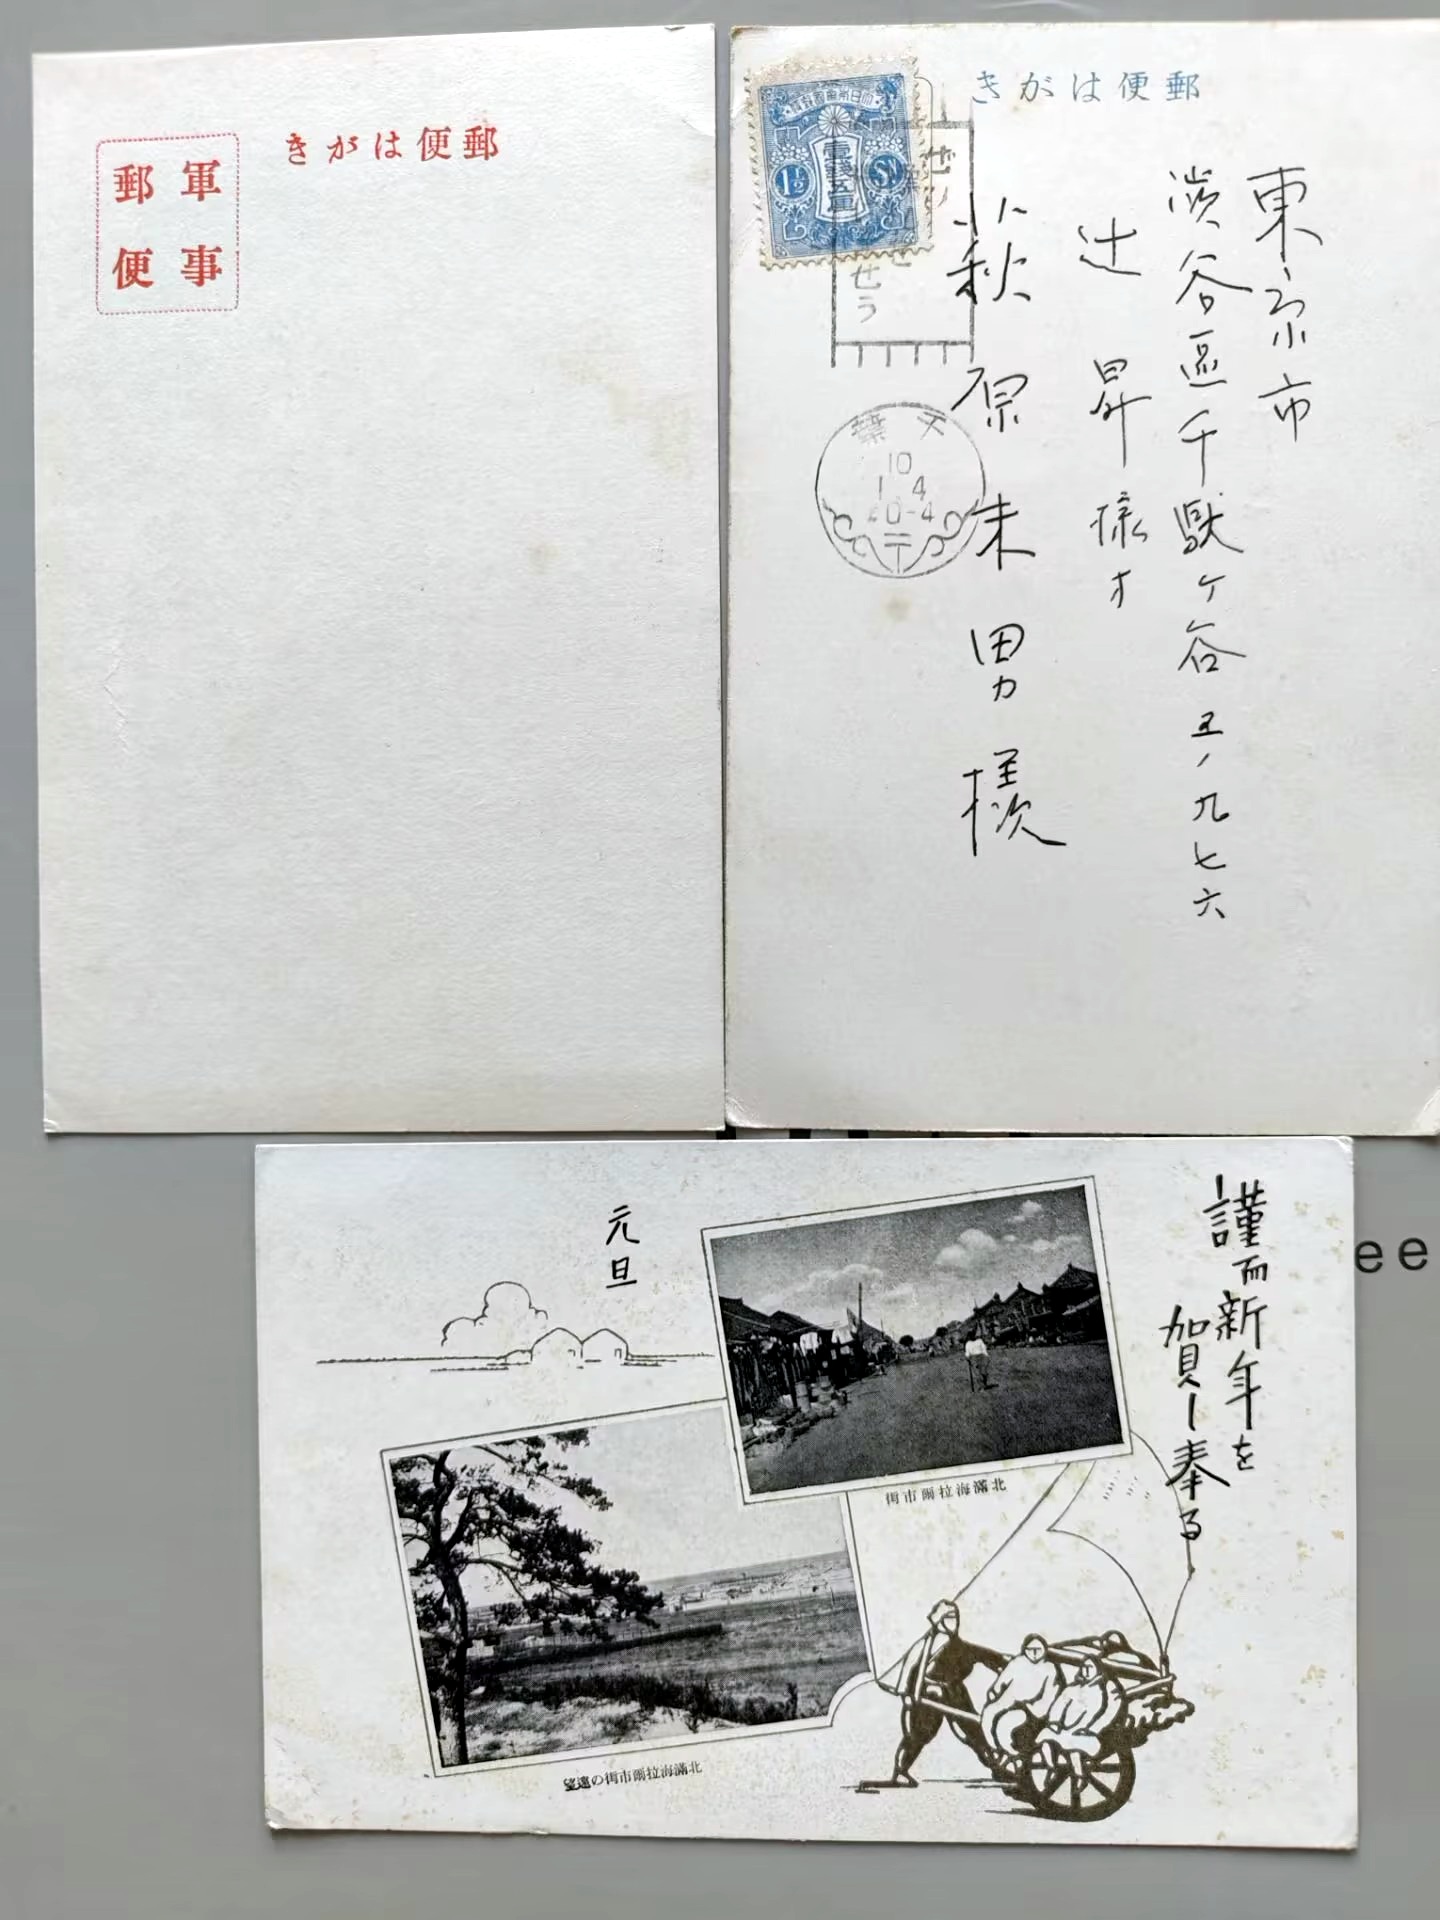 郵便はがき
軍事
郵便
郵便はがき
大日本帝國郵便
壹錢五厘
1½ Sn
せう
10
1 4
0-4
東京市
渋谷區千駄ヶ谷五ノ九七六
辻昇様方
萩原未男様
謹而新年を
賀し奉る
元旦
北滿海拉爾市街
北滿海拉爾市街の遠望
ee